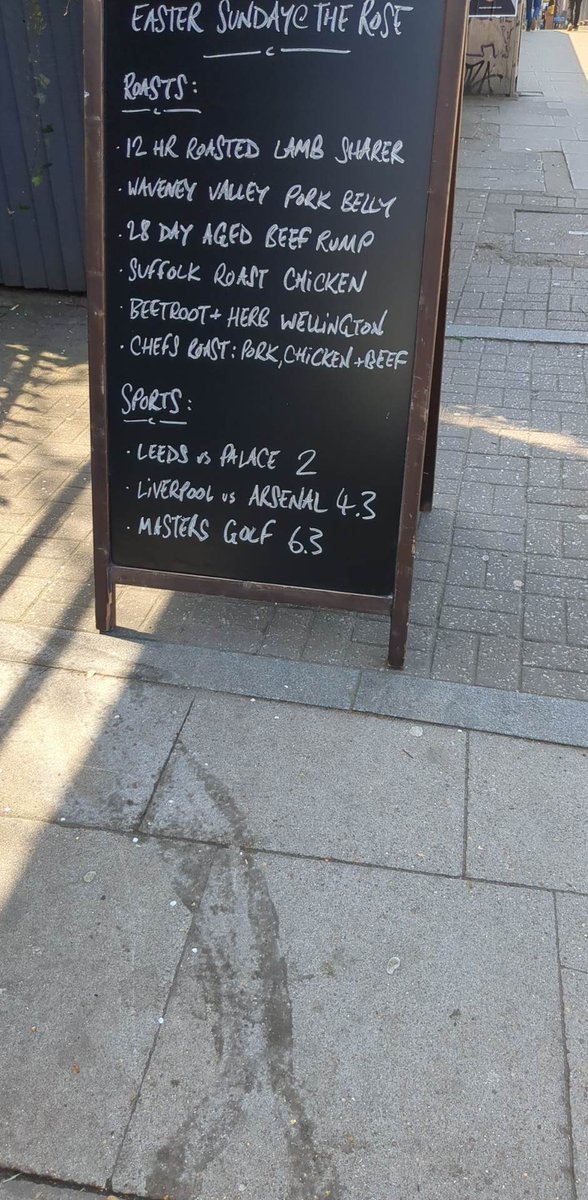 EASTER SUNDAY@ THE ROSE
ROASTS:
· 12 HR ROASTED LAMB SHARER
· WAVENEY VALLEY PORK BELLY
· 28 DAY AGED BEEF RUMP
· SUFFOLK ROAST CHICKEN
· BEETROOT + HERB WELLINGTON
· CHEFS ROAST: PORK, CHICKEN + BEEF
SPORTS:
· LEEDS vs PALACE 2
· LIVERPOOL vs ARSENAL 4.3
· MASTERS GOLF 6.3